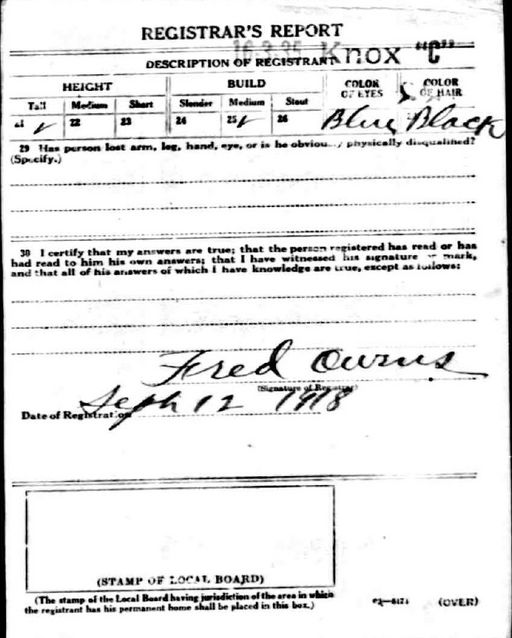 REGISTRAR'S REPORT
16-3-25 Knox "C"
DESCRIPTION OF REGISTRANT
HEIGHT BUILD COLOR OF EYES COLOR OF HAIR
Tall Medium Short Slender Medium Stout
21 ✓ 22 23 24 25 ✓ 26 Blue Black
29 Has person lost arm, leg, hand, eye, or is he obviously physically disqualified?
(Specify.)
30 I certify that my answers are true; that the person registered has read or has
had read to him his own answers; that I have witnessed his signature or mark,
and that all of his answers of which I have knowledge are true, except as follows:
Fred Owens
(Signature of Registrar)
Date of Registration Sept 12 1918
(STAMP OF LOCAL BOARD)
(The stamp of the Local Board having jurisdiction of the area in which
the registrant has his permanent home shall be placed in this box.)
(OVER)